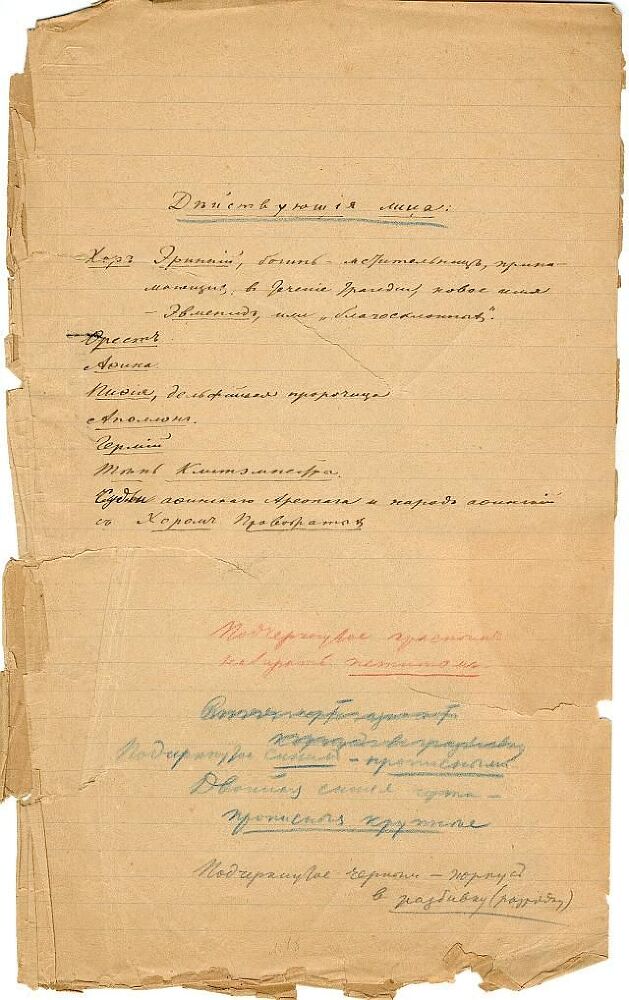 Дѣйствующія лица:
Хоръ Эринній, богинь-мстительницъ, прини-
мающихъ, в теченіе трагедіи, новое имя
– Эвменидъ, или „благосклонныхъ".
Орестъ.
Аѳина.
Пиѳія, дельфійская пророчица
Аполлонъ.
Гермій
Тѣнь Клитэмнестры.
Судьи аѳинскаго Ареопага и народъ аѳинскій
съ Хоромъ Провожатыхъ
Подчеркнутое краснымъ
набирать петитомъ
Подчеркнутое синимъ – прописными
Двойная синяя черта –
прописныя крупные
Подчеркнутое чернымъ – корпусъ
в разбивку (разрядку)